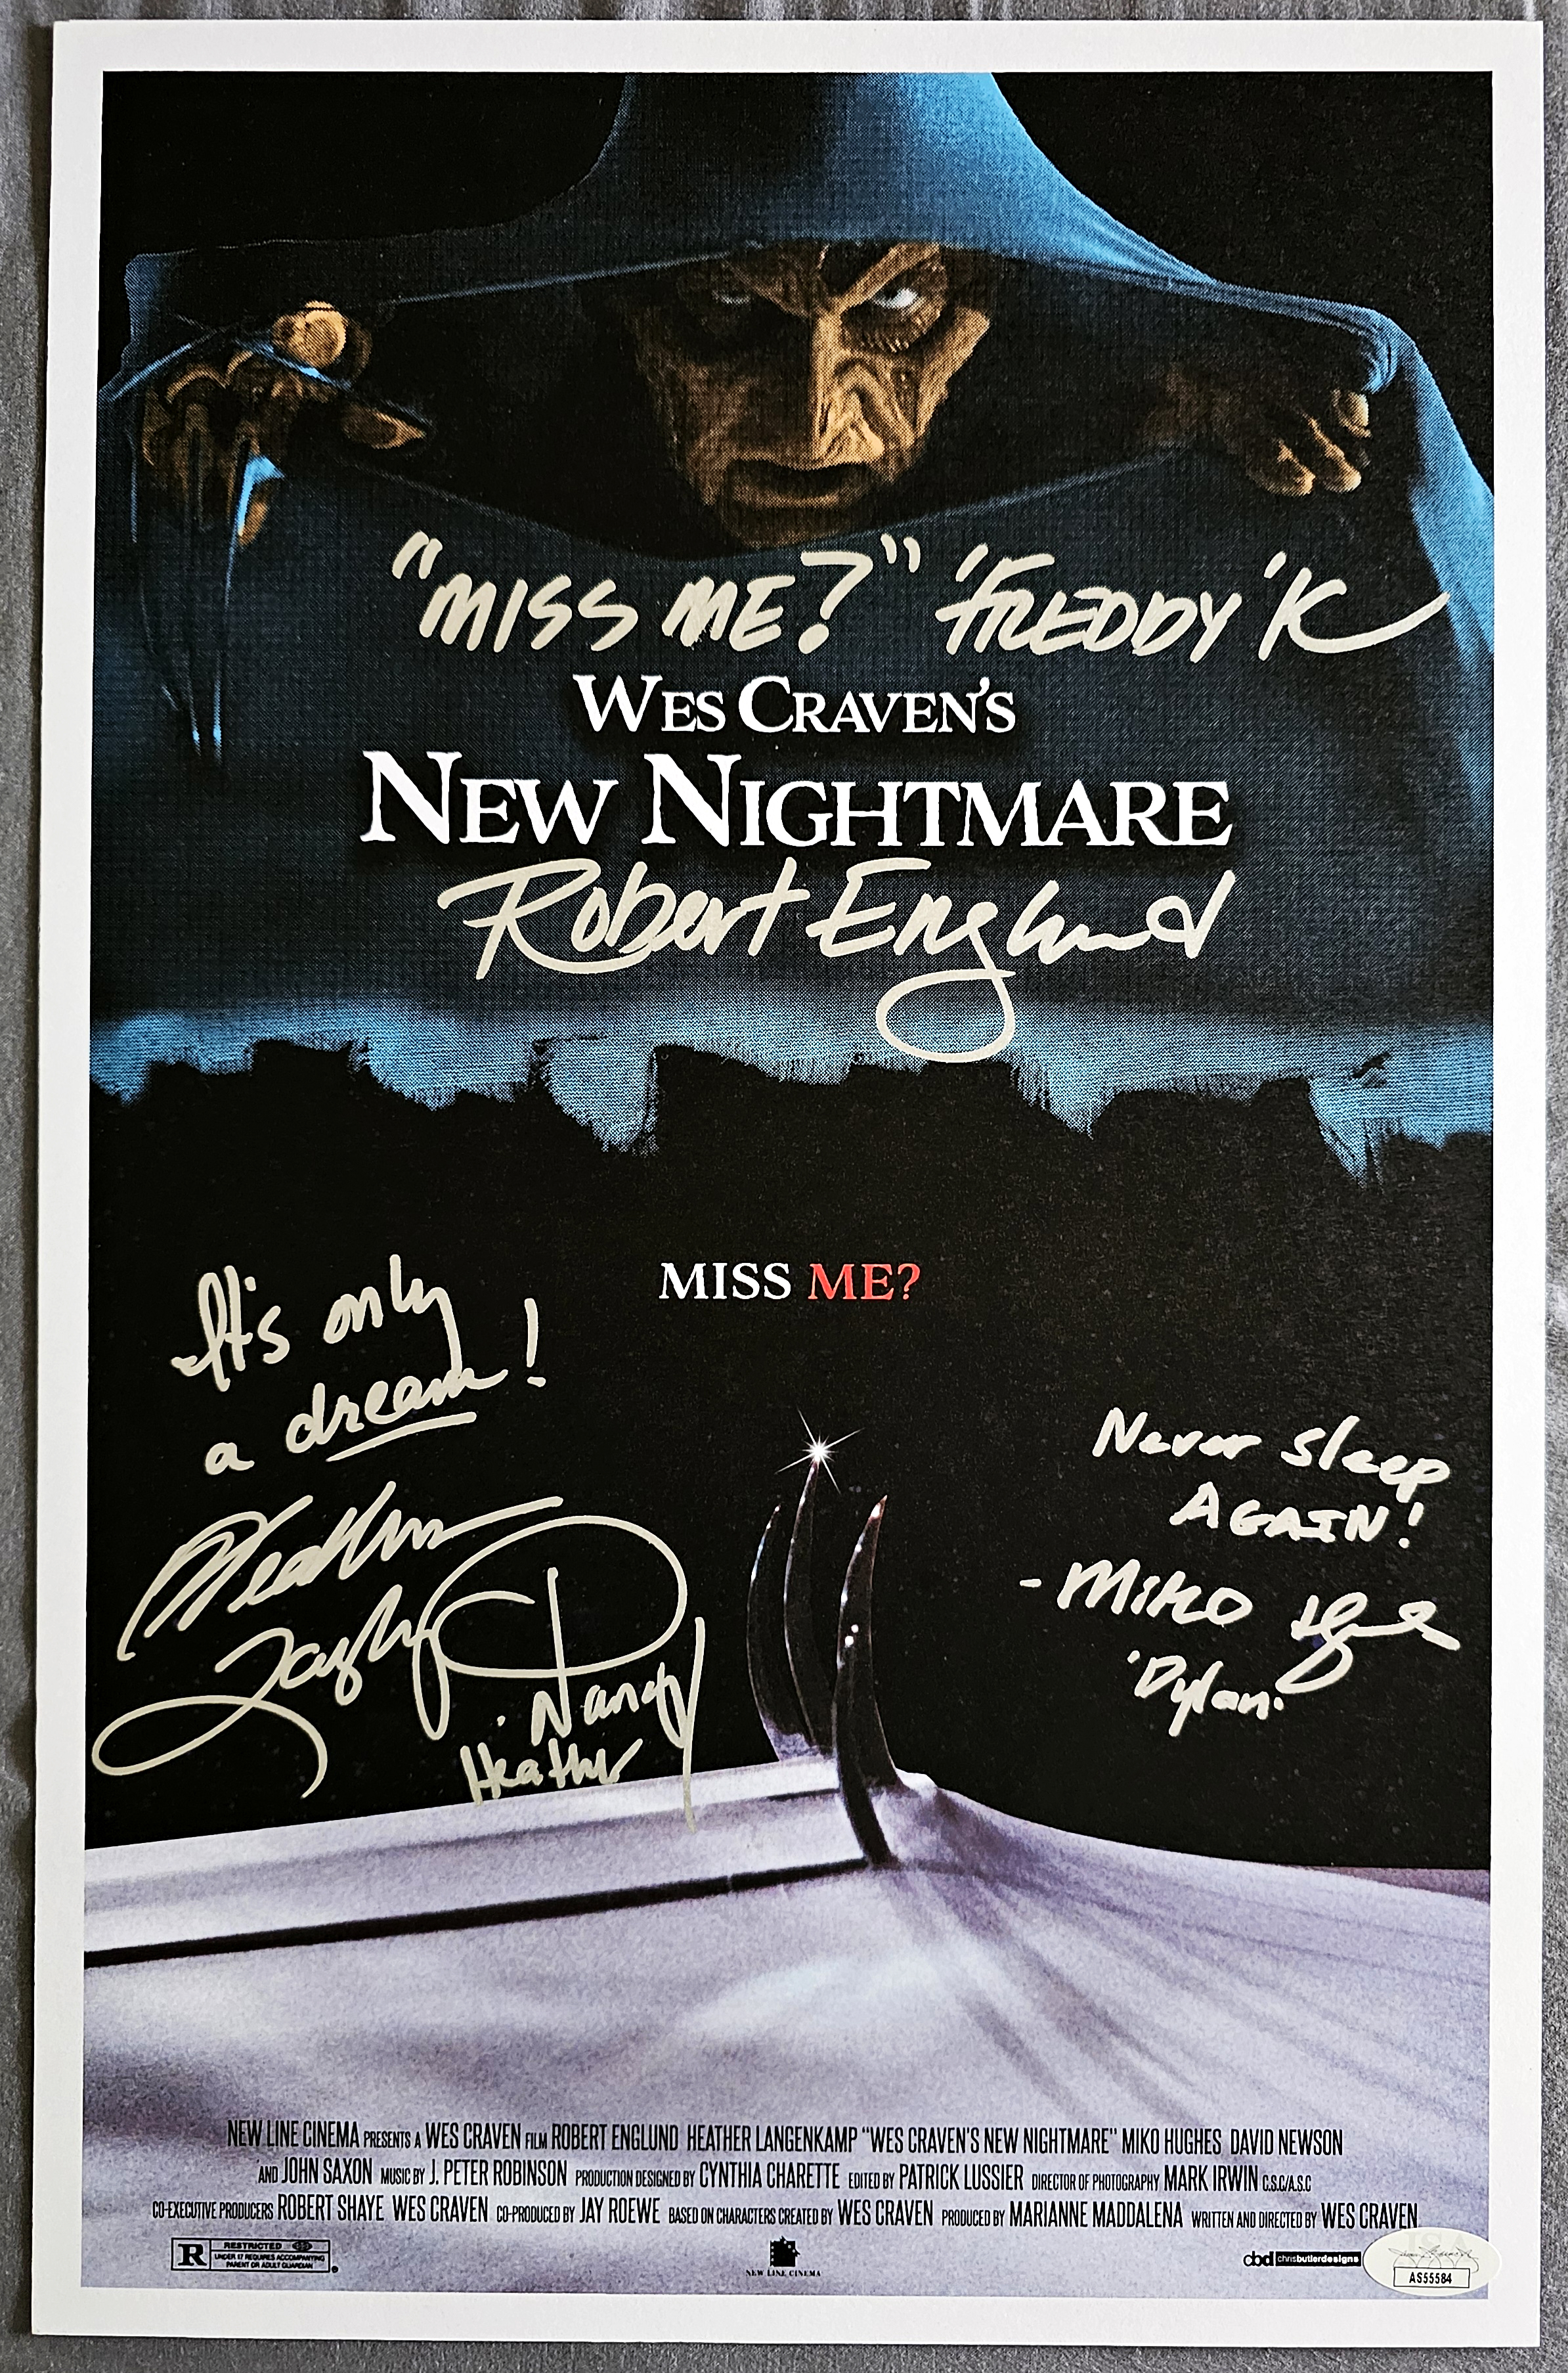 "MISS ME?" 'FREDDY'K
WES CRAVEN'S
NEW NIGHTMARE
Robert Englund
MISS ME?
It's only
a dream!
Heather
Nancy
Heather
Never Sleep
AGAIN!
-MIKO
'Dylan'
NEW LINE CINEMA PRESENTS A WES CRAVEN FILM ROBERT ENGLUND HEATHER LANGENKAMP "WES CRAVEN'S NEW NIGHTMARE" MIKO HUGHES DAVID NEWSON
AND JOHN SAXON MUSIC BY J. PETER ROBINSON PRODUCTION DESIGNED BY CYNTHIA CHARETTE EDITED BY PATRICK LUSSIER DIRECTOR OF PHOTOGRAPHY MARK IRWIN C.S.C/A.S.C
CO-EXECUTIVE PRODUCERS ROBERT SHAYE WES CRAVEN CO-PRODUCED BY JAY ROEWE BASED ON CHARACTERS CREATED BY WES CRAVEN PRODUCED BY MARIANNE MADDALENA WRITTEN AND DIRECTED BY WES CRAVEN
R RESTRICTED
UNDER 17 REQUIRES ACCOMPANYING
PARENT OR ADULT GUARDIAN
NEW LINE CINEMA
cbd chrisbutlerdesigns
AS55584